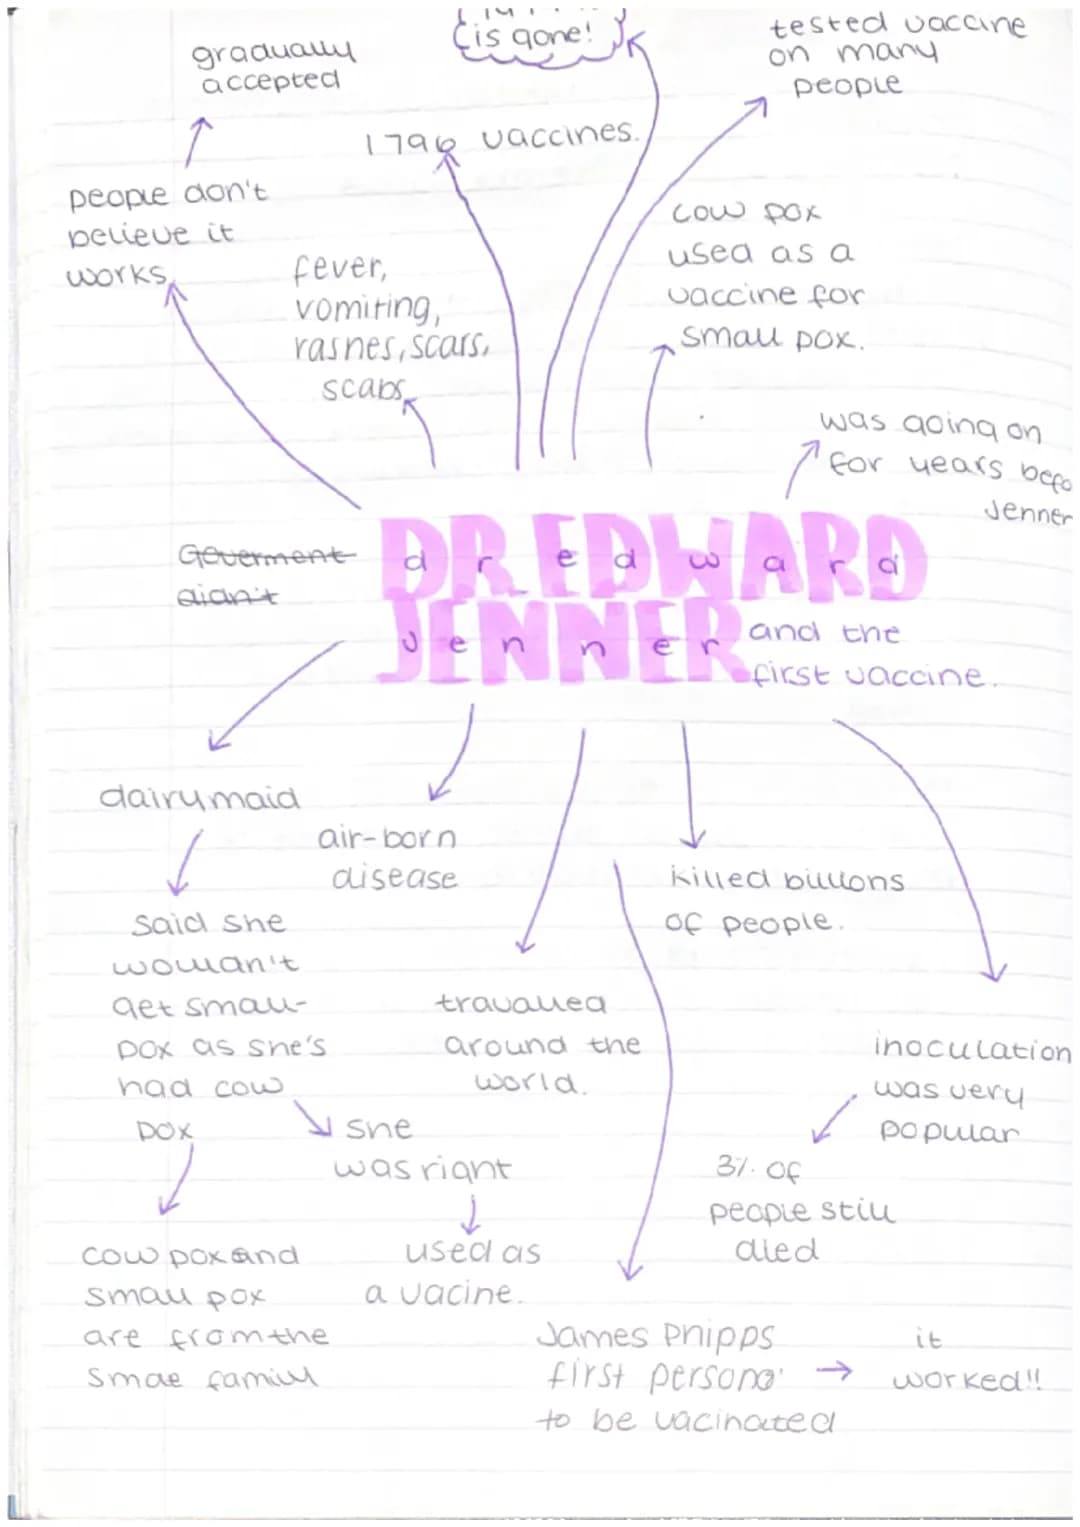 is gone!
tested vaccine
on many
people
gradually
accepted
1796 vaccines.
people don't
believe it
works
cow pox
used as a
vaccine for
small pox.
fever,
vomiting,
rashes, scars,
scabs
was going on
for years befo
Jenner
Goverment
didn't
DR EDWARD
d r e d w a r d
JENNER
J e n n e r
and the
first vaccine.
dairymaid
air-born
disease
killed billions
of people.
said she
wouldn't
get small-
pox as she's
had cow
pox
travalled
around the
world.
inoculation
was very
popular
she
was right
3% of
people still
died
used as
a vacine.
cow pox and
small pox
are from the
smae family
James Phipps
first person
to be vacinated
→
it
worked!!